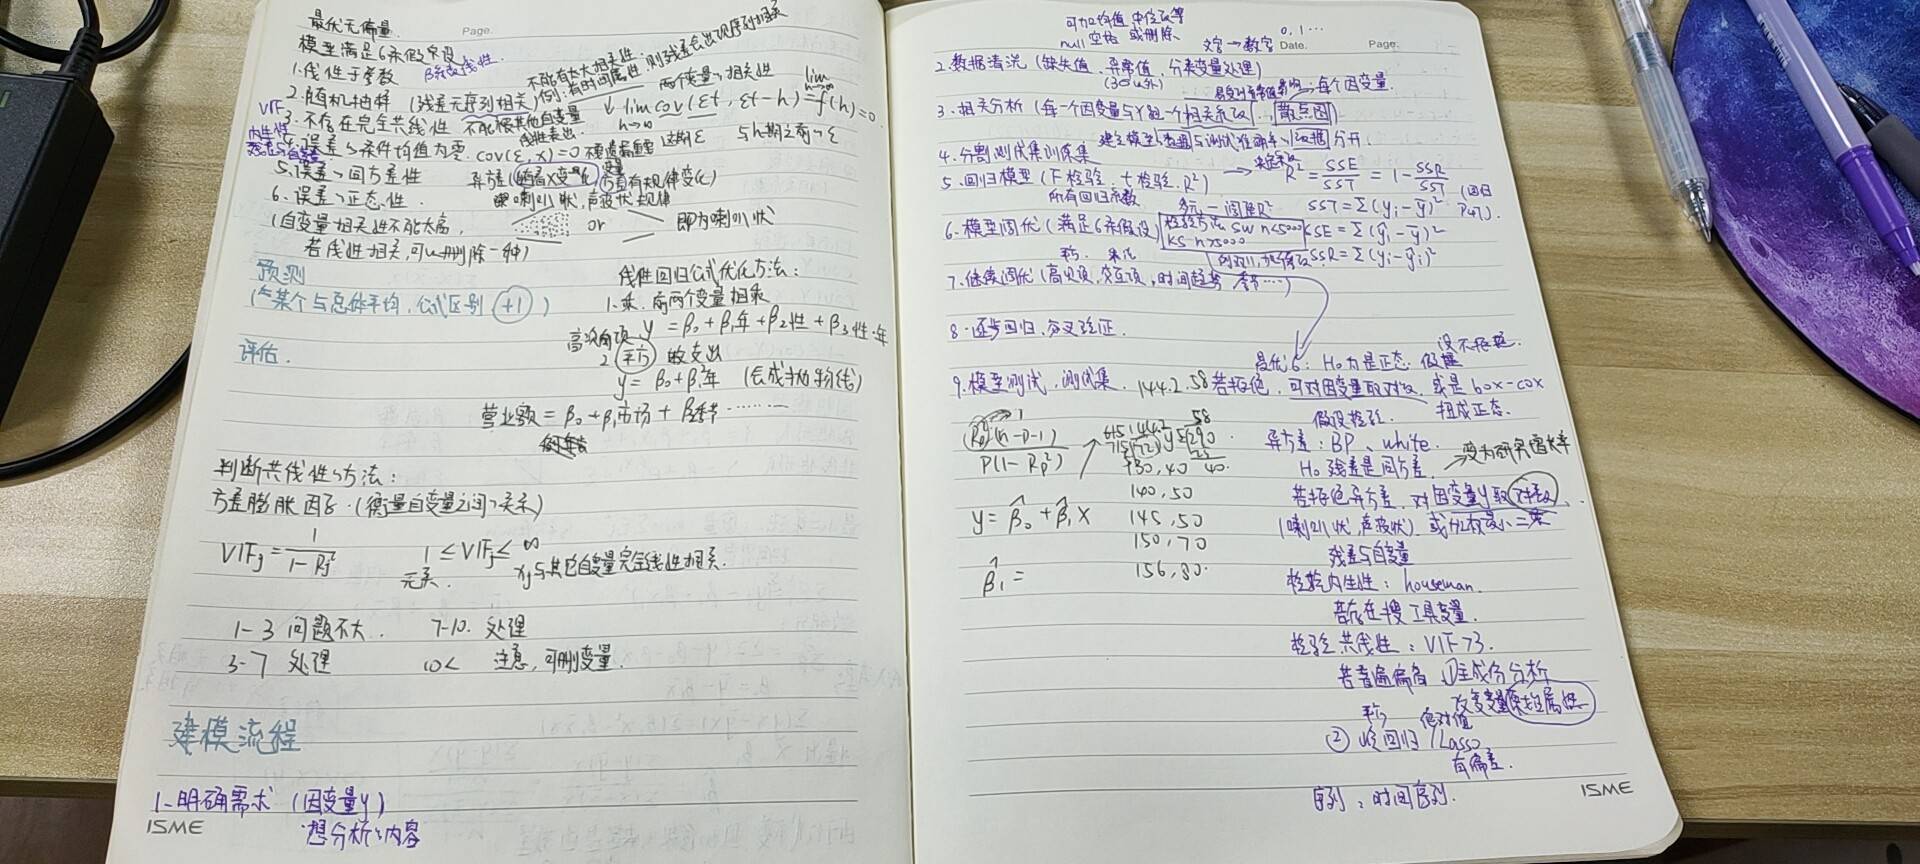 最优无偏量
Page.
模型满足6条假设
β系数线性.
1.线性于参数
不能有太大相关性:则残差会出现序列相关
2.随机抽样 (残差无序列相关)例:有时间属性 两个变量、相关性
VIF 3.不存在完全共线性 不能被其他自变量线性表出.
lim cov(εt, εt-h) = lim f(h) = 0.
h→∞
内生性
4.误差、条件均值为零. cov(ε, x)=0 不要遗漏重要变量
这期ε 与h期之前、ε
5.误差、同方差性 异方差(随着X变化 方差有规律变化)
喇叭状,声波状规律
6.误差、正态性.
or
即为喇叭状
(自变量相关性不能太高,
若线性相关,可以删除一种)
预测
(与某个与总体平均,公式区别 +1)
线性回归公式优化方法:
1.乘.两个变量相乘
y = β₀+β₁年+β₂性+β₃性·年
评估.
高次项
2 平方 的支出
y = β₀+β₁年² (会成抛物线)
营业额 = β₀+β₁市场+β₂季节……
判断共线性、方法:
方差膨胀因子.(衡量自变量之间、关系)
VIFj = 1/(1-Rj²) 1 ≤ VIFj ≤ ∞
无关. xj与其它自变量完全线性相关.
1-3 问题不大. 7-10. 处理
3-7 处理 10< 注意,可删变量
建模流程
1.明确需求 (因变量y)
想分析、内容
ISME
可加均值 中位数等
null 空格 或删除
文字→数字 0,1…
Date. Page.
2.数据清洗 (缺失值、异常值、分类变量处理)
(3σ以外)
每个因变量.
3.相关分析 (每一个因变量与Y跑一个相关系数.. 散点图)
4.分割测试集训练集
分开.
5.回归模型 (F检验.t检验.R²) → R² = SSE/SST = 1 - SSR/SST
所有回归系数 多元-调整R² SST=Σ(yᵢ-ȳ)²
6.模型调优 (满足6条假设) 检验方法 SW n<5000
KS n>5000
SSE = Σ(ŷᵢ-ȳ)²
SSR=Σ(yᵢ-ŷᵢ)²
7.继续调优 (高次项,交互项,时间趋势 季节…)
8.逐步回归.交叉验证.
9.模型测试.测试集. 144.2.58
最优6: H₀为是正态.假设 没不拒绝.
若拒绝,可对因变量取对数,或是box-cox
假设检验. 扭成正态.
R²(n-p-1)
P(1-Rp²)
异方差: BP、white.
H₀残差是同方差. → 变为研究增长率
130,40
140,50
若拒绝异方差.对因变量y取对数.
y = β̂₀+β̂₁x 145,50
(喇叭状,声波状).或加权最小二乘
150,70
残差与自变量
β̂₁ = 156,80.
检验内生性: houseman.
若存在搜工具变量.
检验共线性: VIF>3.
若普遍偏高 ①主成份分析
改变变量原始属性
平方 绝对值
② 岭回归 (Lasso
有偏差.
序列: 时间序列.
ISME